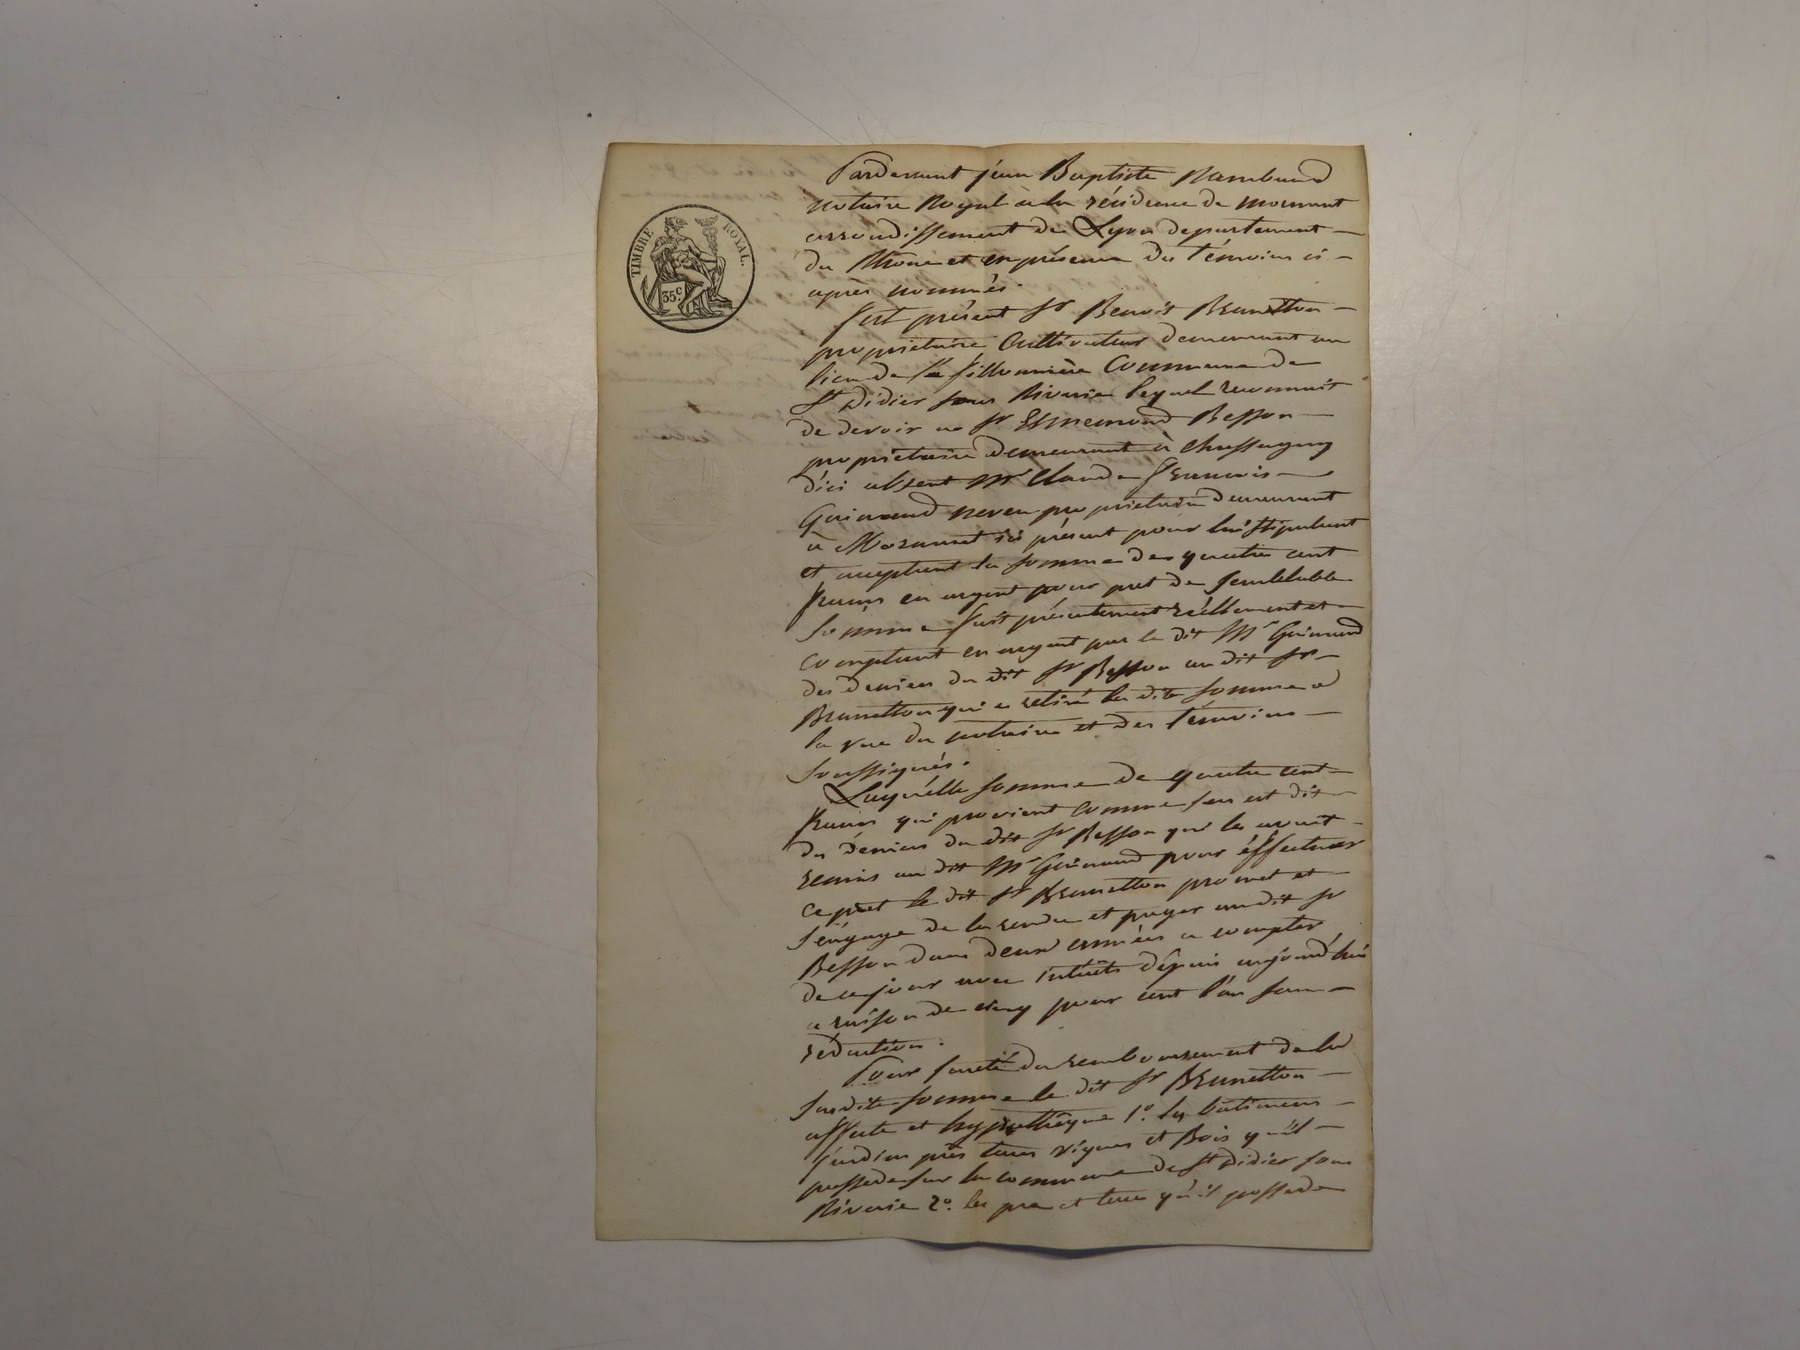 TIMBRE ROYAL.
35c
Pardevant jean Baptiste Rambaud
notaire Royal à la résidence de mornant
arrondissement de Lyon departement
du Rhone et en présence des témoins ci-
après nommés.
fut présent Sr Benoit Brunetton
propriétaire Cultivateur demeurant au
lieu de la fillonnière Commune de
St Didier sous Riverie lequel reconnait
de devoir a Sr Besson
propriétaire demeurant à chassagny
d'ici absent Mr Claude françois
Guinand neveu propriétaire demeurant
à Mornant ici présent pour lui stipulant
et acceptant la somme de quatre cent
francs en argent pour pret de semblable
somme fait présentement réellement et
comptant en argent par le dit Mr Guinand
des deniers du dit Sr Besson au dit Sr
Brunetton qui a retiré la dite somme a
la vue du notaire et des témoins
soussignés.
Laquélle somme de quatre cent
francs qui provient comme sus est dit
des déniers du dit Sr Besson qui les avait
remis au dit Mr Guinand pour éffectuer
ce pret le dit Sr Brunetton promet et
s'éngage de la rendre et payer au dit Sr
Besson dans deux années a compter
de ce jour avec intérêts dépuis aujourd'hui
a raison de cinq pour cent l'an sans
réduction.
Pour sureté du remboursement de la
susdite somme le dit Sr Brunetton
affecte et hypothèque 1o. les batimens
jardin près terres vignes et Bois qu'il
possede sur la commune de St Didier sous
Riverie 2o. les pré et terre qu'il possede